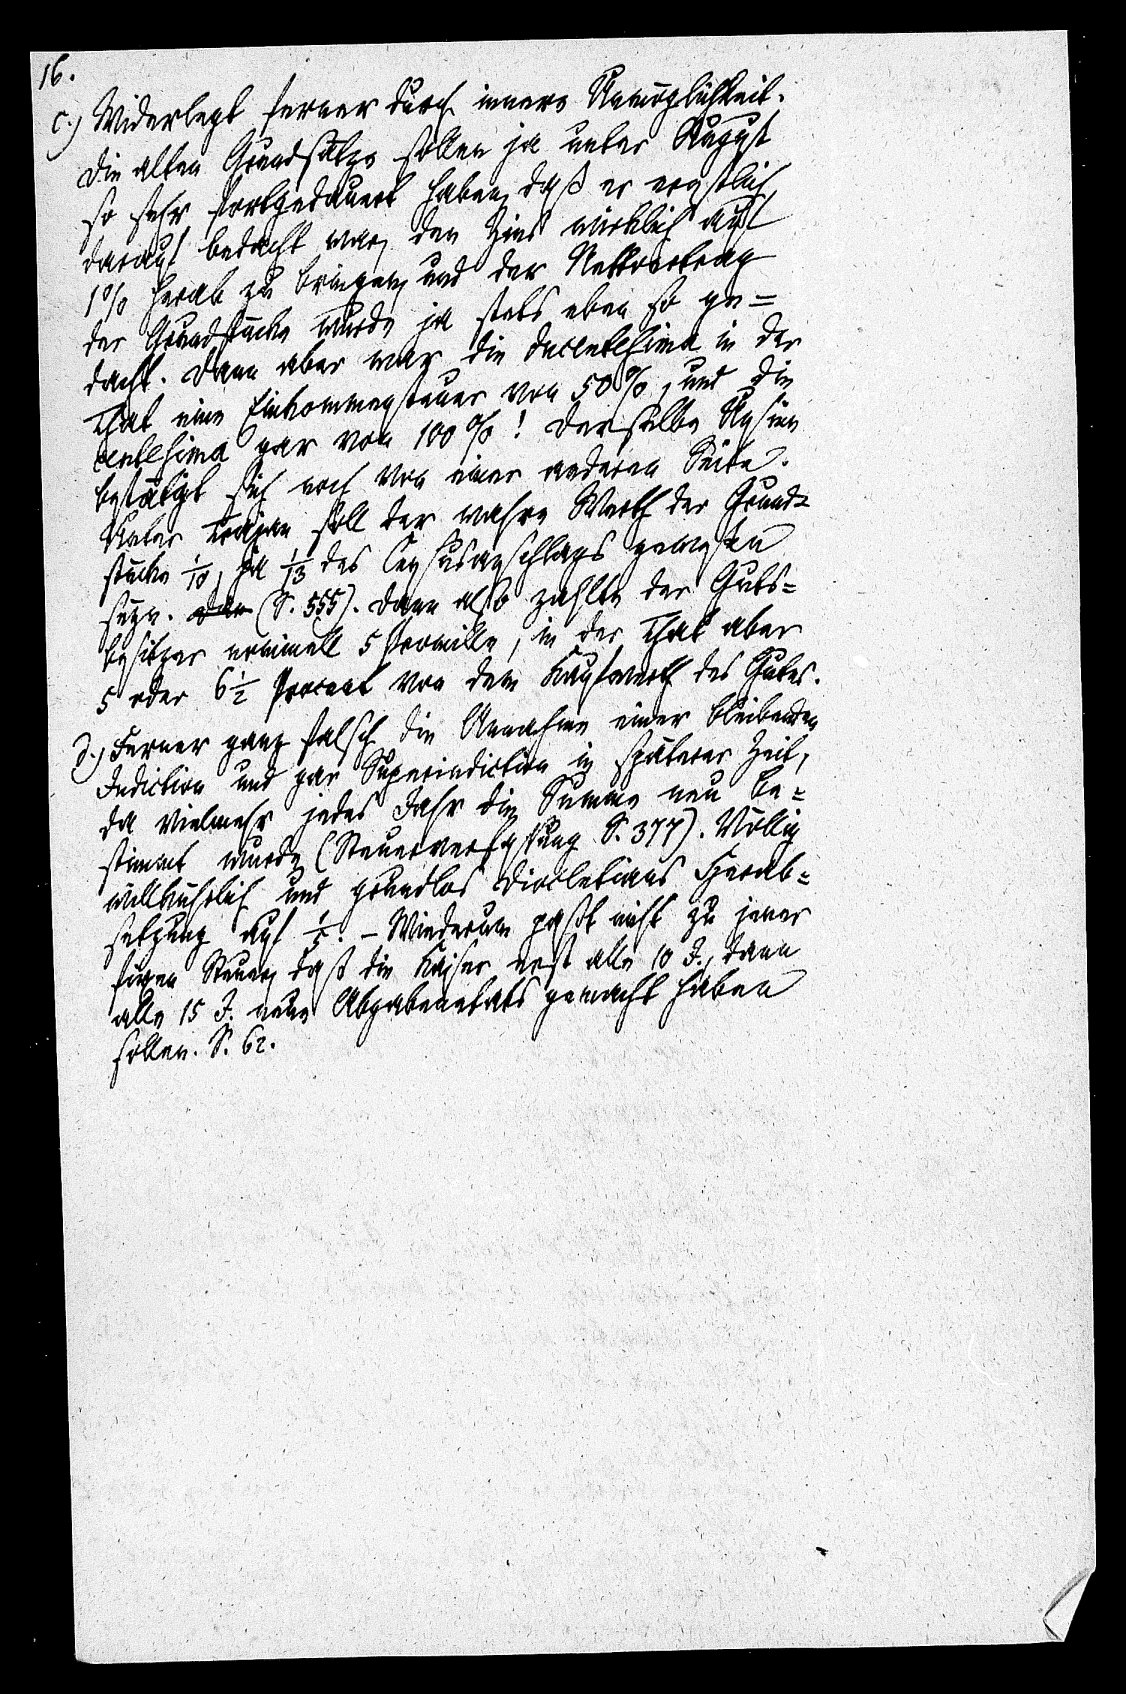 16.
c.) Widerlegt ferner durch innere Unmöglichkeit.
Die alten Grundsätze sollen ja unter August
so sehr fortgedauert haben, daß er ernstlich
darauf bedacht war, den Zins wirklich auf
1% herab zu bringen, und der Nettoertrag
der Grundstücke wurde ja stets eben so ge=
dacht. Dann aber war die ducentesima in der
That eine Einkommensteuer von 50%, und die
centesima gar von 100%! Derselbe Unsinn
bestätigt sich noch von einer anderen Seite.
Unter Trajan soll der wahre Werth der Grund=
stücke 1/10, ja 1/13 des Censusanschlags gewesen
seyn. (S. 555). Dann also zahlte der Guts=
besitzer nominell 5 Promille, in der That aber
5 oder 6 1/2 Procent von dem Kaufwerth des Gutes.
d.) Ferner ganz falsch die Annahme einer bleibenden
Indiction und gar Superindiction in späterer Zeit,
da vielmehr jedes Jahr die Summe neu be=
stimmt wurde (Steuerverfassung S. 377). Völlig
willkührlich und grundlos Diocletians Herab=
setzung auf 1/5. – Wiederum paßt nicht zu jener
fixen Steuer, daß die Kaiser erst alle 10 J., dann
alle 15 J. neue Abgabenetats gemacht haben
sollen. S. 62.